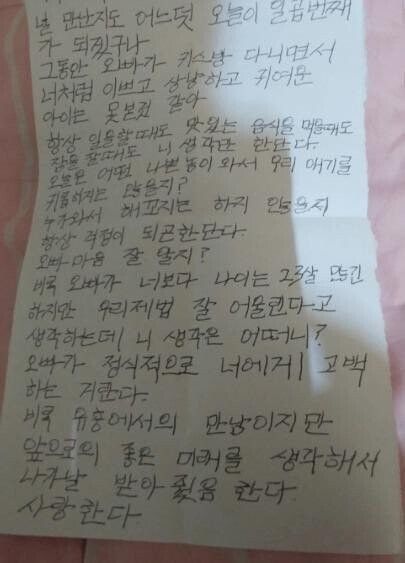 널 만난지도 어느덧 오늘이 일곱번째
가 되겠구나
그동안 오빠가 키스방 다니면서
너처럼 이쁘고 상냥하고 귀여운
아이는 못본것 같아
항상 일을할때도 맛있는 음식을 먹을때도
잠을 잘때도 니 생각만 한단다.
오늘은 어떤 나쁜 놈이 와서 우리 애기를
괴롭히지는 않을지?
누가와서 해꼬지는 하지 않을지
항상 걱정이 되곤한단다.
오빠마음 잘 알지?
비록 오빠가 너보다 나이는 23살 많긴
하지만 우리제법 잘 어울린다고
생각하는데 니 생각은 어떠니?
오빠가 정식적으로 너에게 고백
하는 거란다.
비록 유흥에서의 만남이지만
앞으로의 좋은 미래를 생각해서
나가날 받아 줬음 한다
사랑한다.